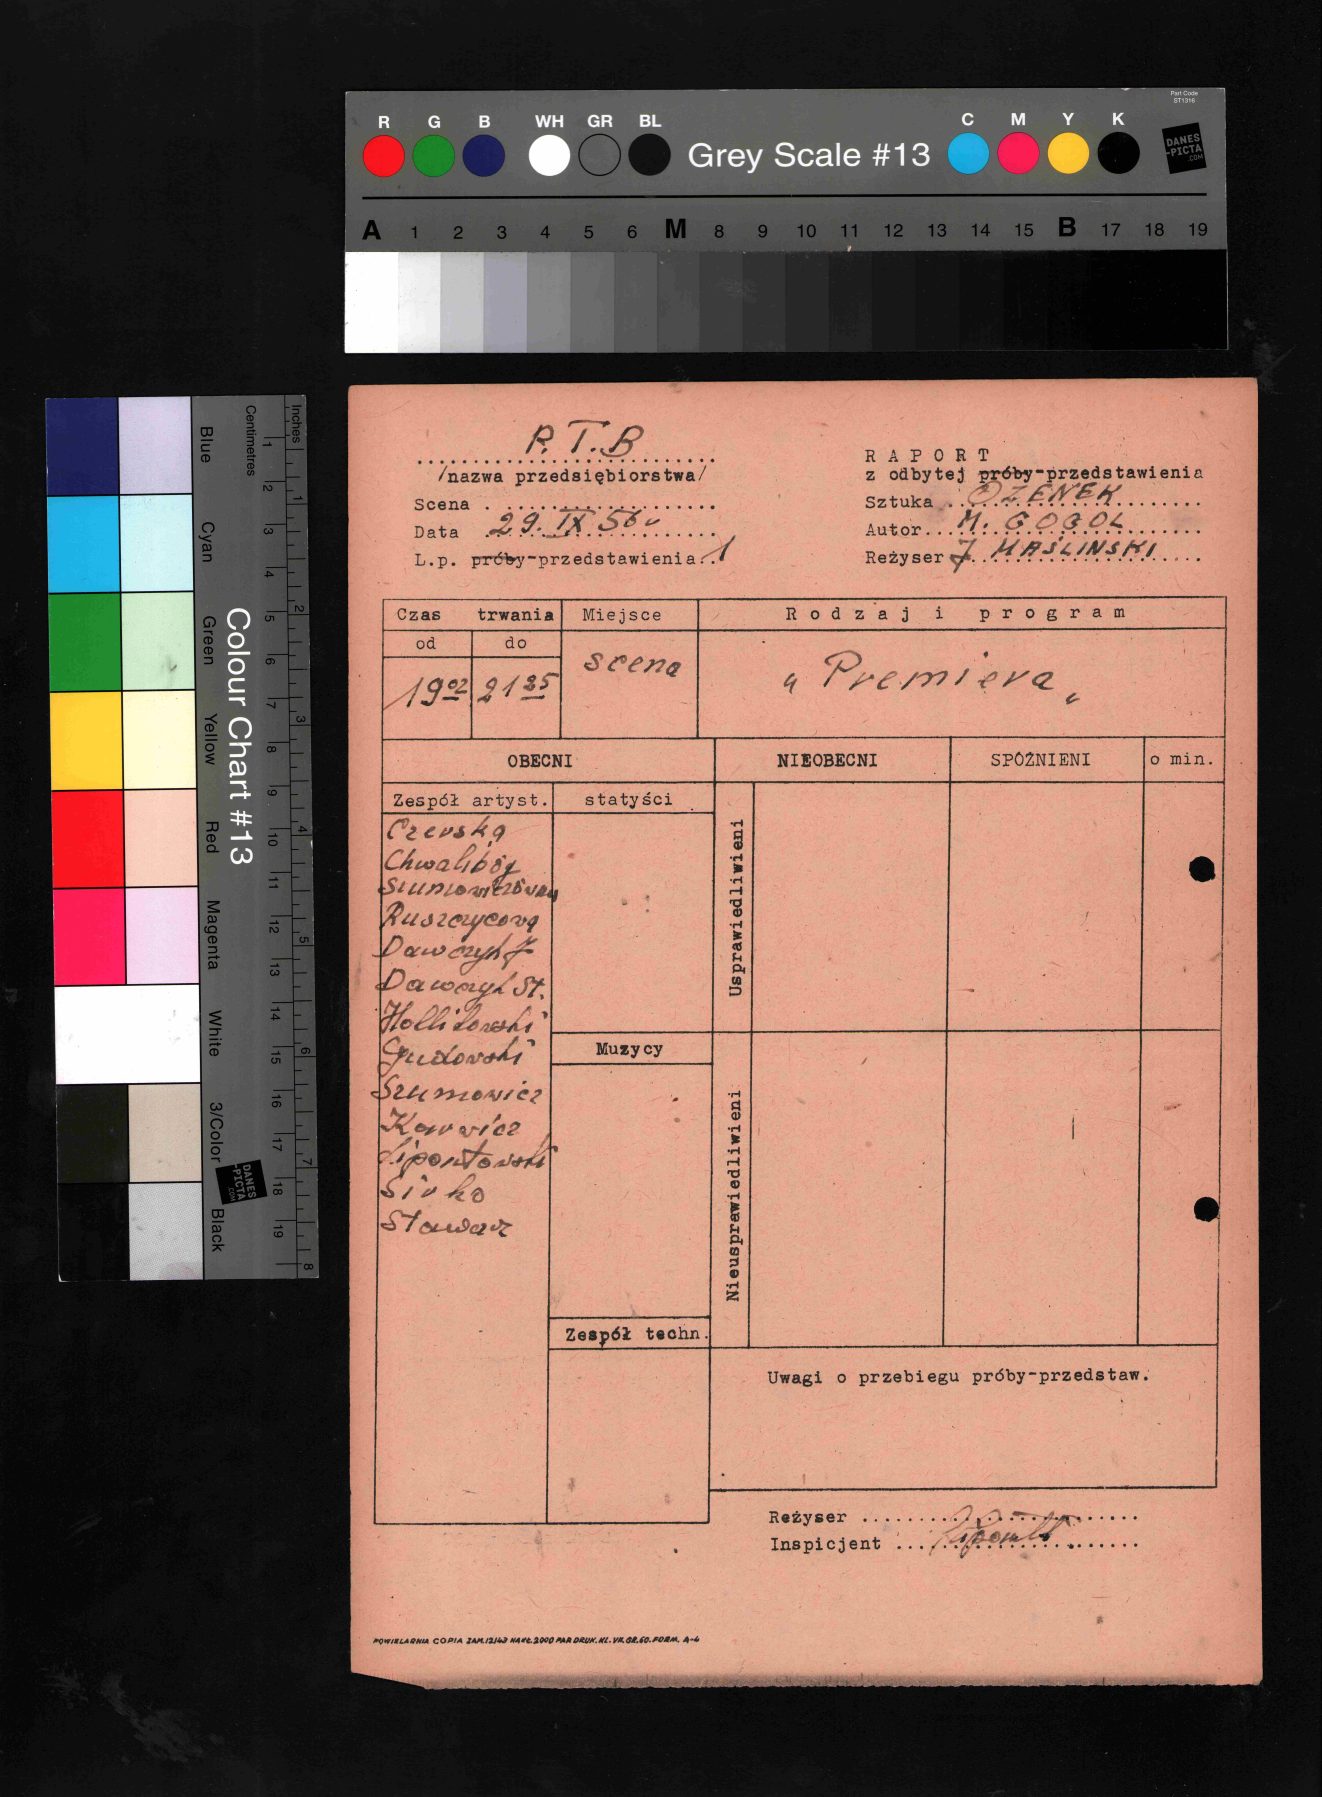 Part Code
ST1316
R G B WH GR BL Grey Scale #13 C M Y K
DANES
-PICTA
.COM
A 1 2 3 4 5 6 M 8 9 10 11 12 13 14 15 B 17 18 19
Colour Chart #13
Blue
Cyan
Green
Yellow
Red
Magenta
White
3/Color
Black
Centimetres
1 2 3 4 5 6 7 8 9 10 11 12 13 14 15 16 17 18 19
Inches
1 2 3 4 5 6 7 8
DANES
-PICTA
.COM
P.T.B
/nazwa przedsiębiorstwa/
Scena
Data 29. IX 56
L.p. próby-przedstawienia..1
RAPORT
z odbytej próby-przedstawienia
Sztuka OŻENEK
Autor M. GOGOL
Reżyser J. MAŚLIŃSKI
Czas trwania Miejsce Rodzaj i program
od do
19⁰² 21²⁵ scena „Premiera„
OBECNI NIEOBECNI SPÓŹNIENI o min.
Zespół artyst. statyści
Czerska
Chwalibóg
Szumowiczówna
Ruszczycowa
Dawczyk J
Dawczyk St.
Gudowski
Szumowicz
Karwicz
Lipontowski
Sirko
Stawarz
Muzycy
Zespół techn.
Usprawiedliwieni
Nieusprawiedliwieni
Uwagi o przebiegu próby-przedstaw.
Reżyser
Inspicjent
POWIELARNIA COPIA ZAM.12143 NAKŁ.2000 PAP.DRUK.KL.VII.GR.60.FORM. A-4